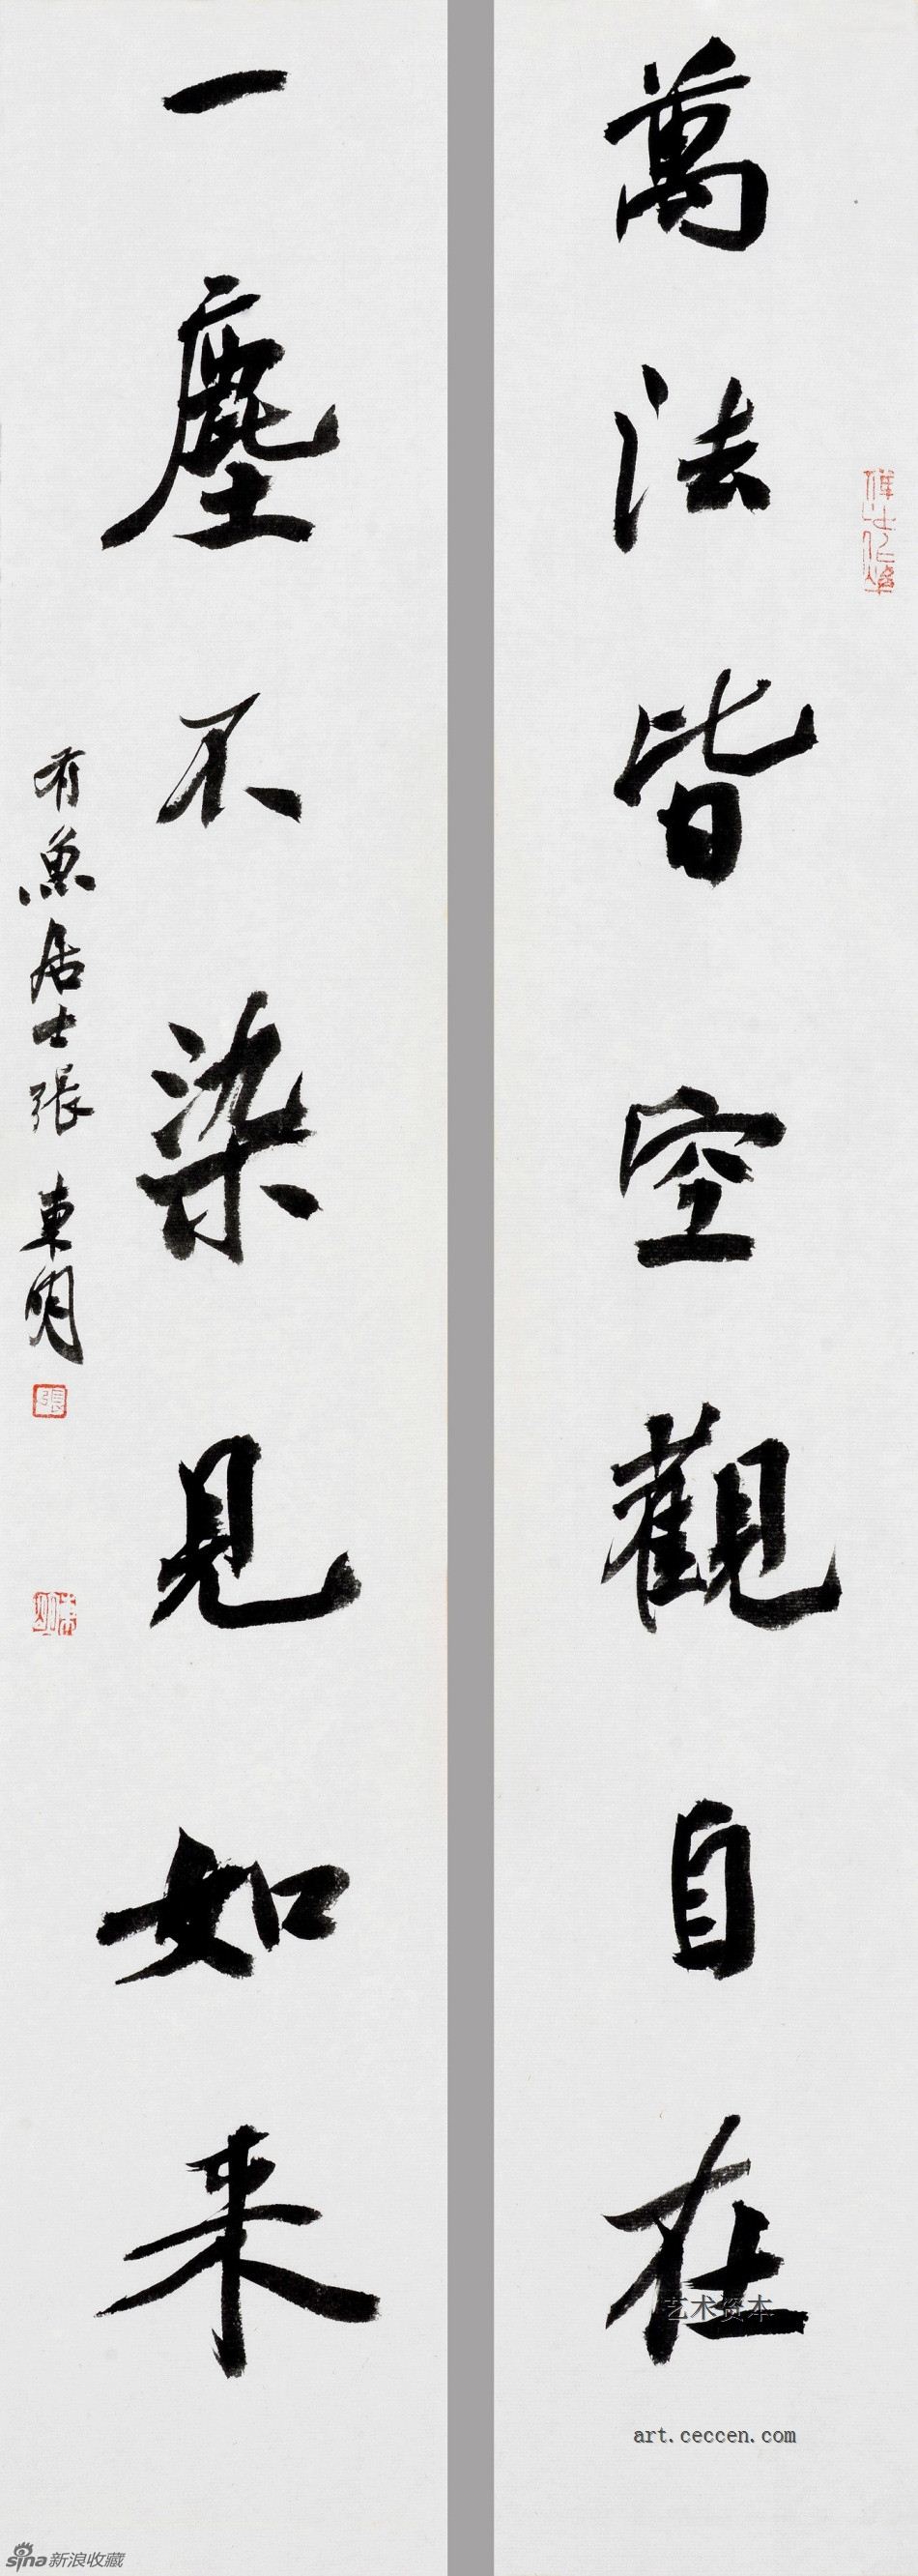 萬法皆空觀自在
一塵不染見如来
有魚居士張東明
張
東明
艺术资本
art.ceccen.com
sina新浪收藏